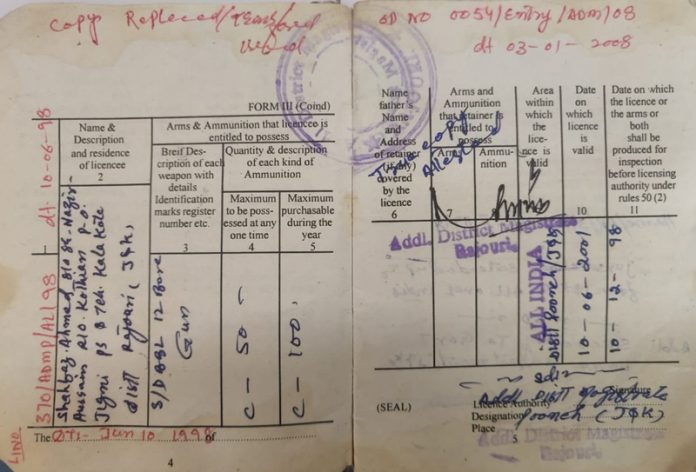 Copy Replaced/Transfered
Issued
FORM III (Contd)
L. No 370/ADMP/AL/98 dt 10-06-98
Name &
Description
and residence
of licencee
2
Arms & Ammunition that licencee is
entitled to possess
Breif Des-
cription of each
weapon with
details
Identification
marks register
number etc.
3
Quantity & description
of each kind of
Ammunition
Maximum
to be poss-
essed at any
one time
4
Maximum
purchasable
during the
year
5
Shahbaz Ahmed S/o Sh. Nazir
Hussain R/o Kothian P.O.
Jigni PS & Teh. Kalakote
distt Rajouri (J&K)
S/DBBL 12 Bore
Gun
C - 50
C - 100
The Jun 10 1998 of
4
OD NO 0054/Entry/ADM/08
dt 03-01-2008
Name
father's
Name
and
Address
of retainer
(if any)
covered
by the
licence
6
Arms and
Ammunition
that retainer is
entitled to
possess
Arms
7
Ammu-
nition
Area
within
which
the
lice-
nce is
valid
Date
on
which
licence
is
valid
10
Date on which
the licence or
the arms or
both
shall be
produced for
inspection
before licensing
authority under
rules 50 (2)
11
True copy
Attested
Addl. District Magistrate
Rajouri
ALL INDIA
Distt Poonch/J&K
10-06-2001
10-12-98
Sd/-
Addl. Distt Magistrate
Signature
(SEAL)
Licence Authority
Designation Poonch (J&K)
Place
5
Addl. District Magistrate
Rajouri